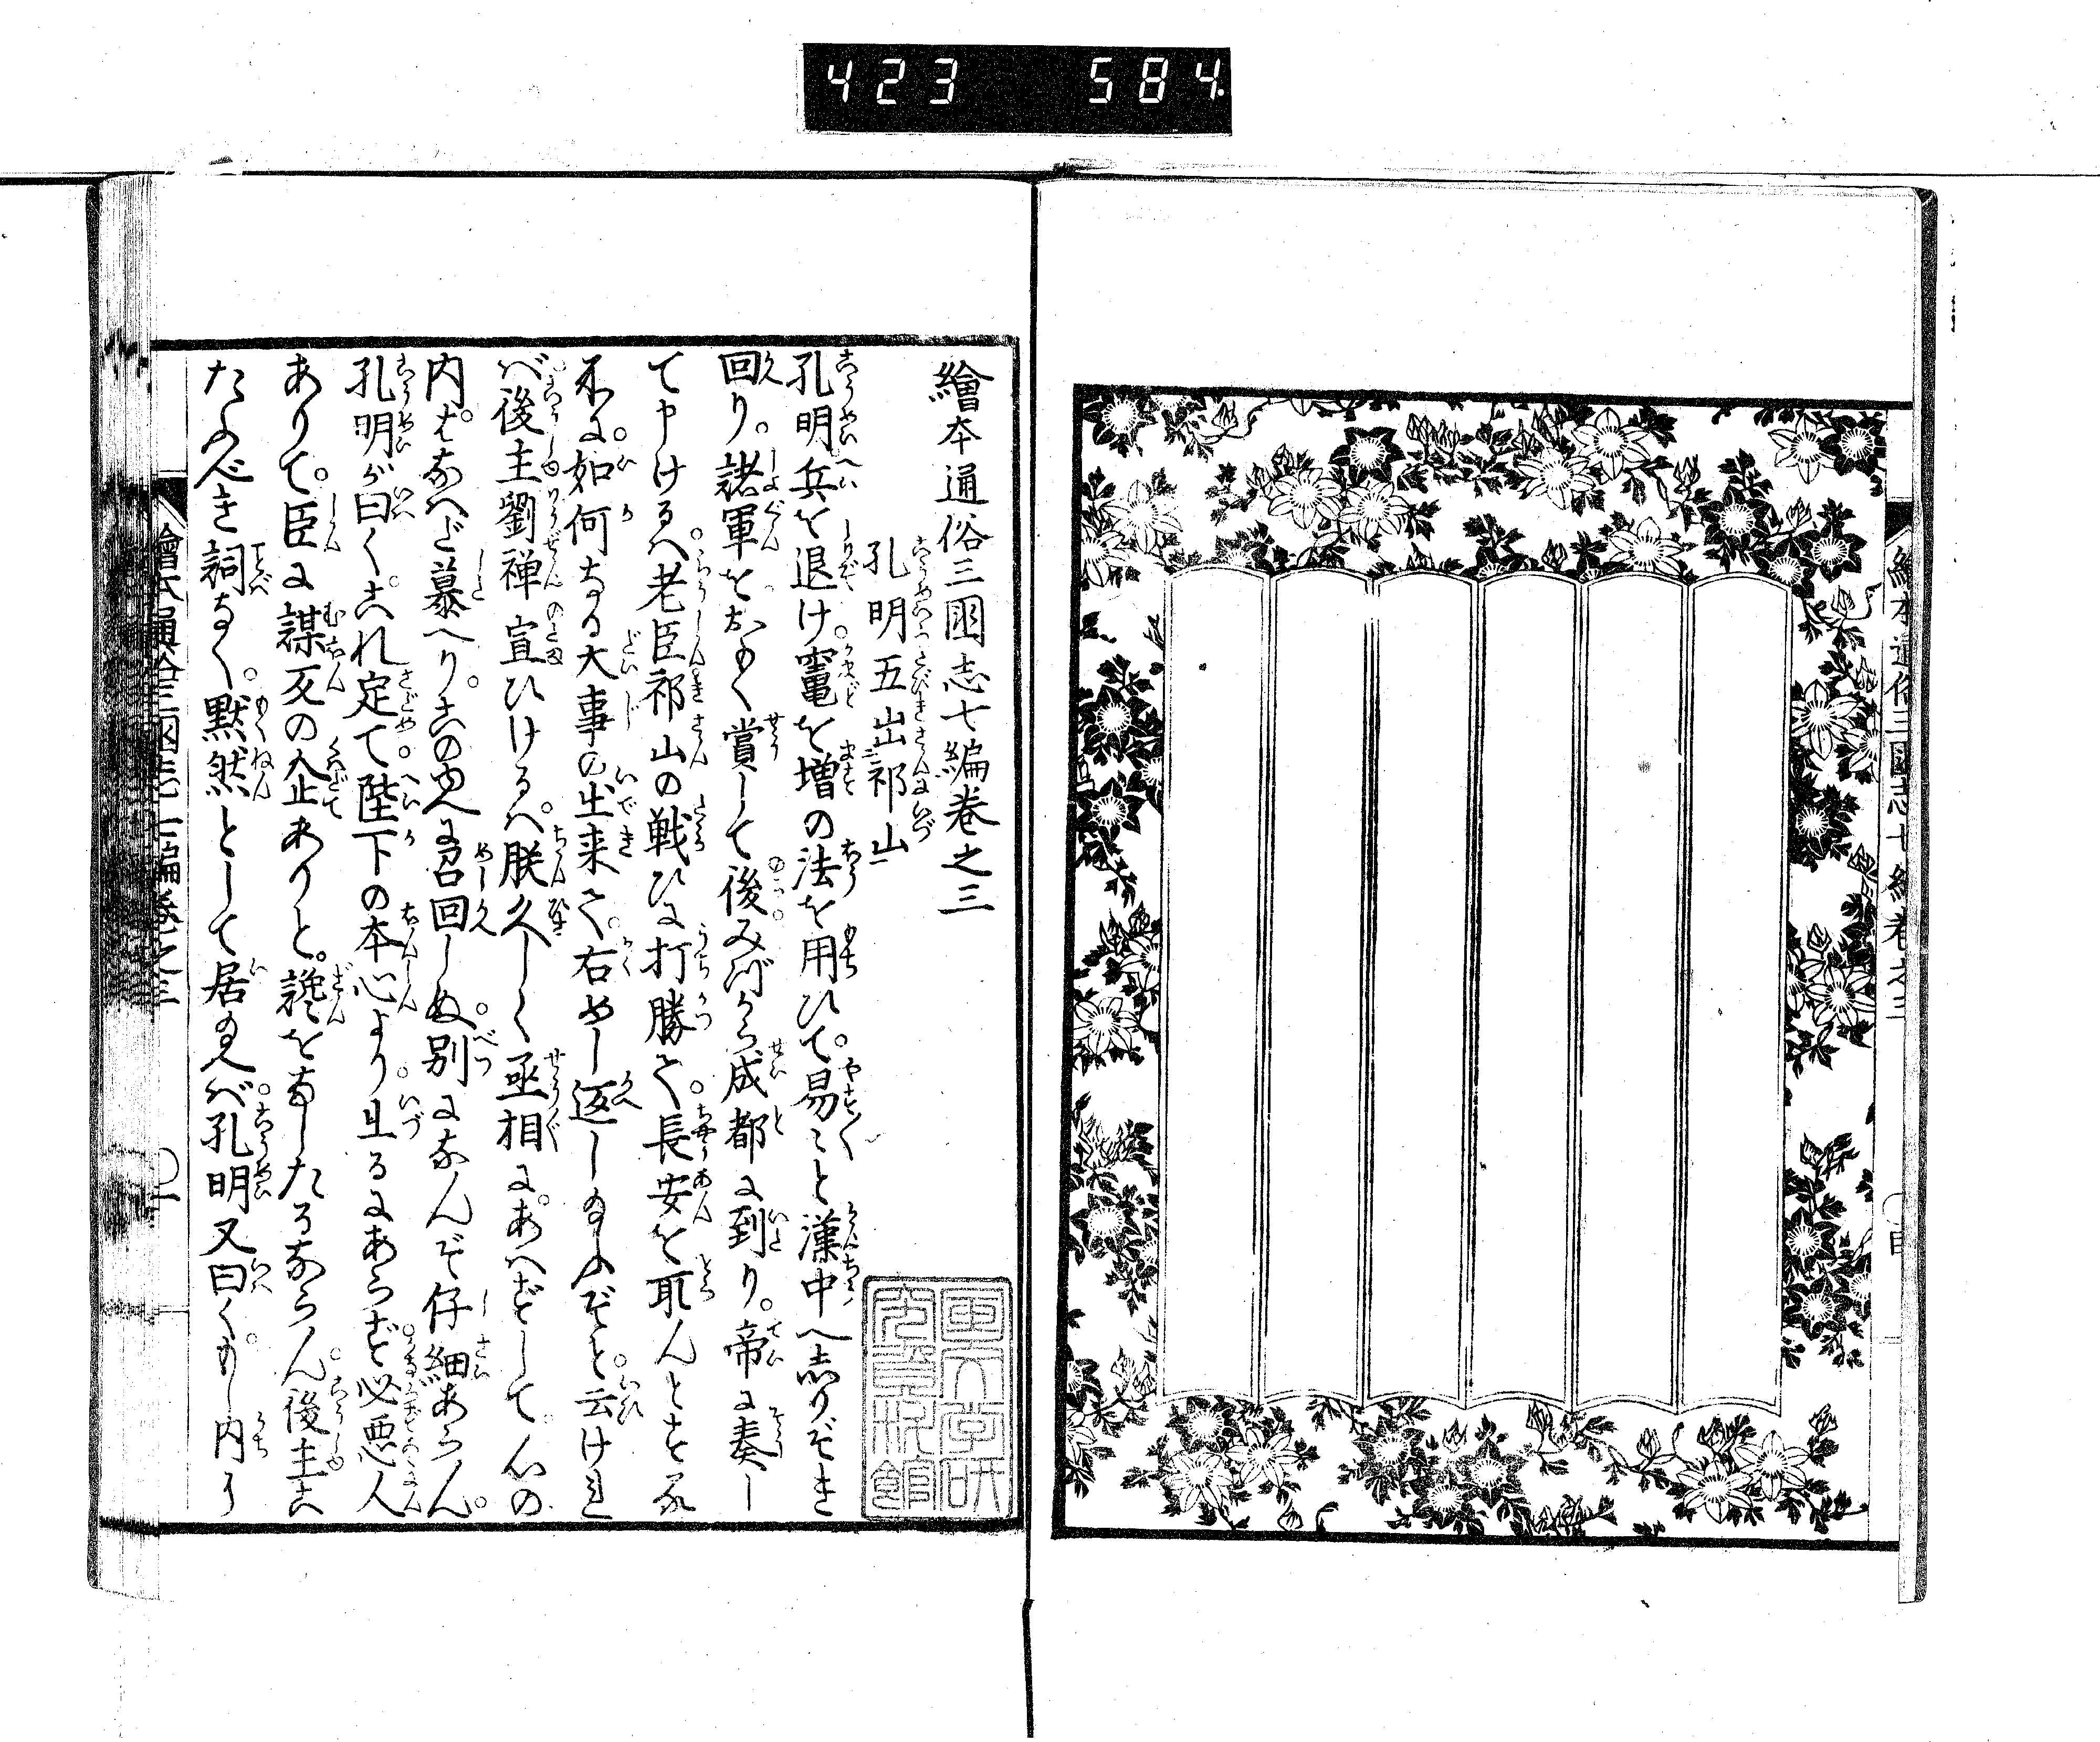 423 584
繪本通俗三國志七編卷之三
繪本通俗三國志七編卷之三
孔明五出祁山
孔明兵を退け。竃を増の法を用ひて。易〻と漢中へ志りぞき
回り。諸軍をおもく賞して後。みづから成都に到り。帝に奏し
て申けるハ。老臣祁山の戦ひに打勝て。長安を取んとする
不に。如何なる大事の出来て。右めし返し給ふぞと。云けれ
ば。後主劉禅宣ひけるハ。朕久しく丞相に。あハずして。心の
内。はなハだ慕へり。この由へに召回しぬ。別になんぞ仔細あらん。
孔明が曰く。これ定て。陛下の本心より。出るにあらず。必ず悪人
ありて。臣に謀反の企ありと。讒をなしたるならん。後主こ
たふべき詞なく。黙然として居給へば。孔明又曰く。もし内に
繪本通俗三國志七編卷之三
〇一